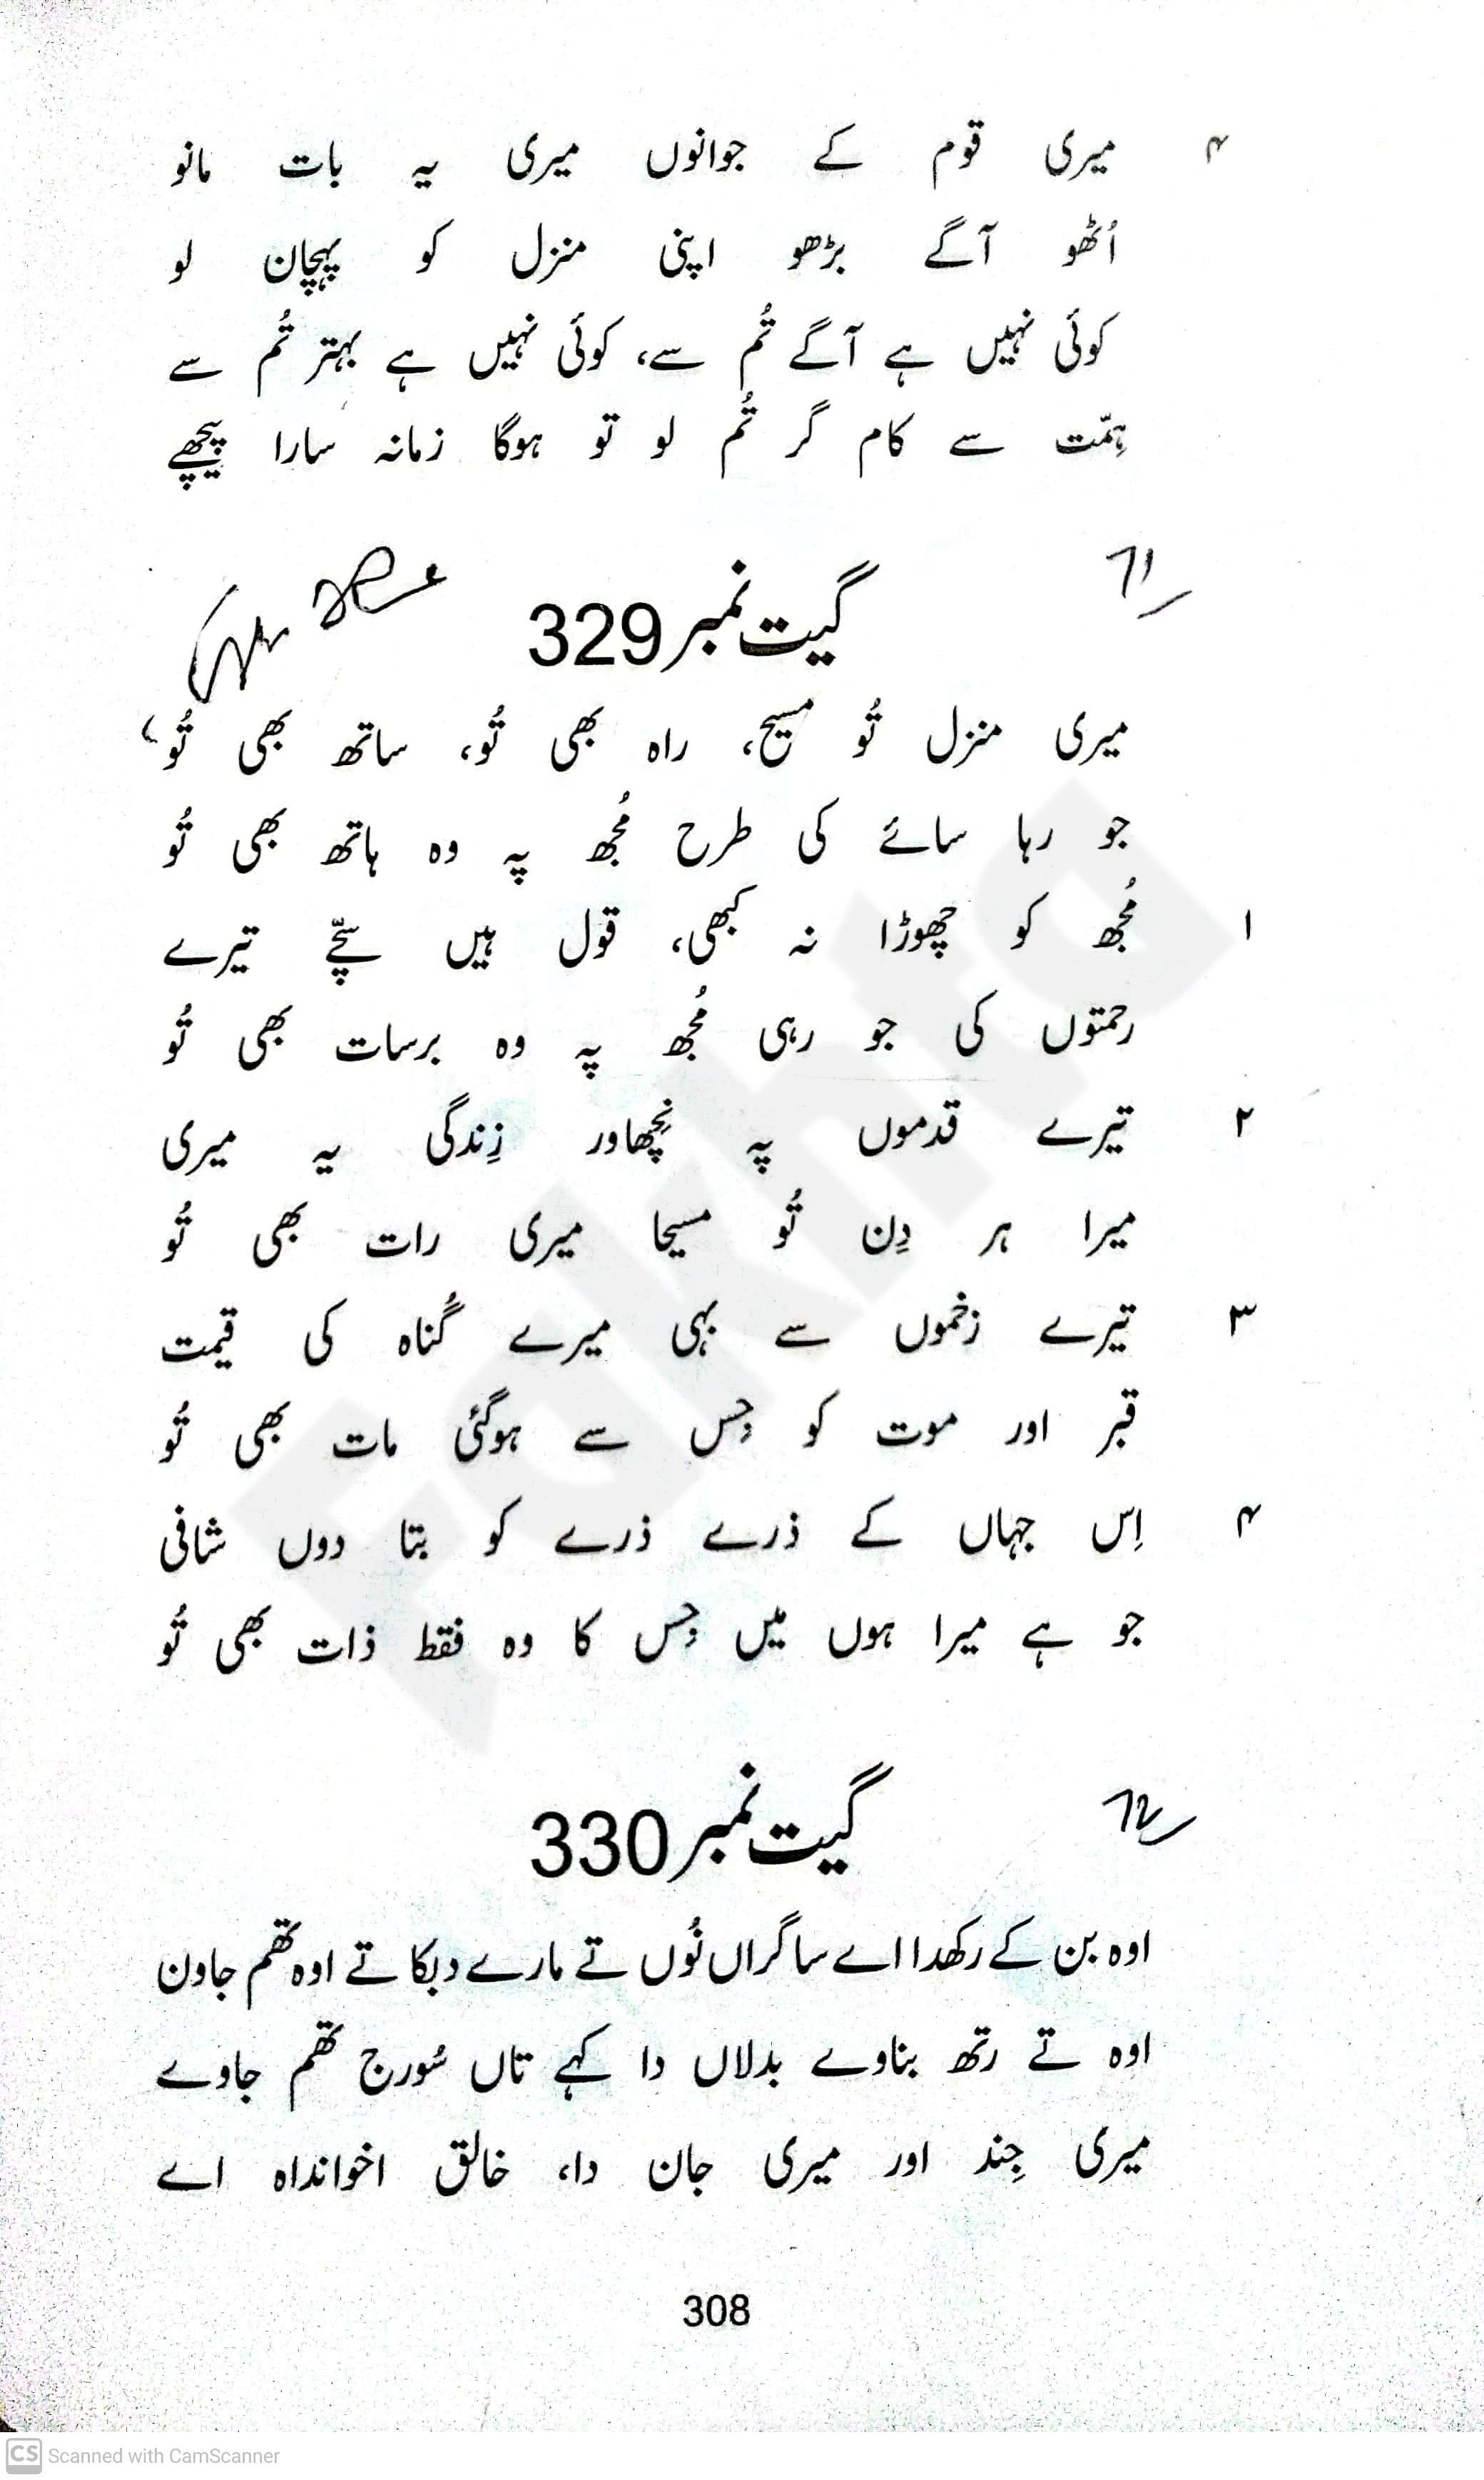 ۴ میری قوم کے جوانوں میری یہ بات مانو
اُٹھو آگے بڑھو اپنی منزل کو پہچان لو
کوئی نہیں ہے آگے تُم سے، کوئی نہیں ہے بہتر تُم سے
ہِمّت سے کام گر تُم لو تو ہوگا زمانہ سارا پیچھے
71
گیت نمبر 329
میری منزل تُو مسیح، راہ بھی تُو، ساتھ بھی تُو،
جو رہا سائے کی طرح مُجھ پہ وہ ہاتھ بھی تُو
۱ مُجھ کو چھوڑا نہ کبھی، قول ہیں سچّے تیرے
رحمتوں کی جو رہی مُجھ پہ وہ برسات بھی تُو
۲ تیرے قدموں پہ نچھاور زِندگی یہ میری
میرا ہر دِن تُو مسیحا میری رات بھی تُو
۳ تیرے زخموں سے بہی میرے گُناہ کی قیمت
قبر اور موت کو جِس سے ہوگئی مات بھی تُو
۴ اِس جہاں کے ذرے ذرے کو بتا دوں شافی
جو ہے میرا ہوں میں جِس کا وہ فقط ذات بھی تُو
72
گیت نمبر 330
اوہ بن کے رکھدا اے ساگراں نُوں تے مارے دبکا تے اوہ تھم جاون
اوہ تے رتھ بناوے بدلاں دا کہے تاں سُورج تھم جاوے
میری جِند اور میری جان دا، خالق اخوانداہ اے
308
Fakhta
CS Scanned with CamScanner